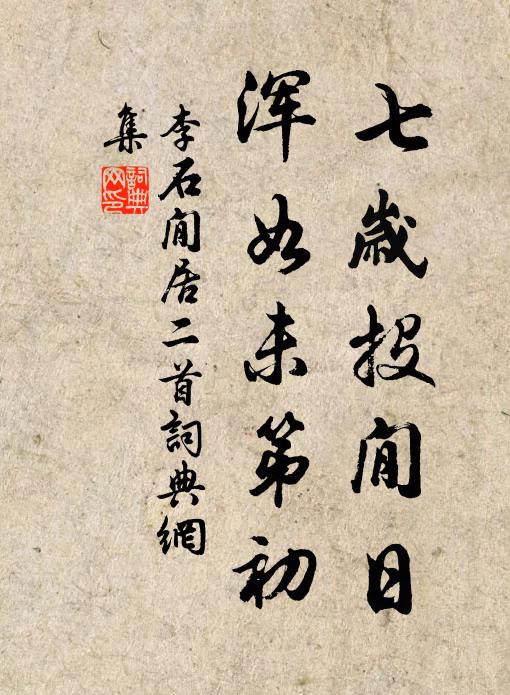 七歲投閒日
渾如未第初
李石閒居二首詞典網
集
詞典
网印